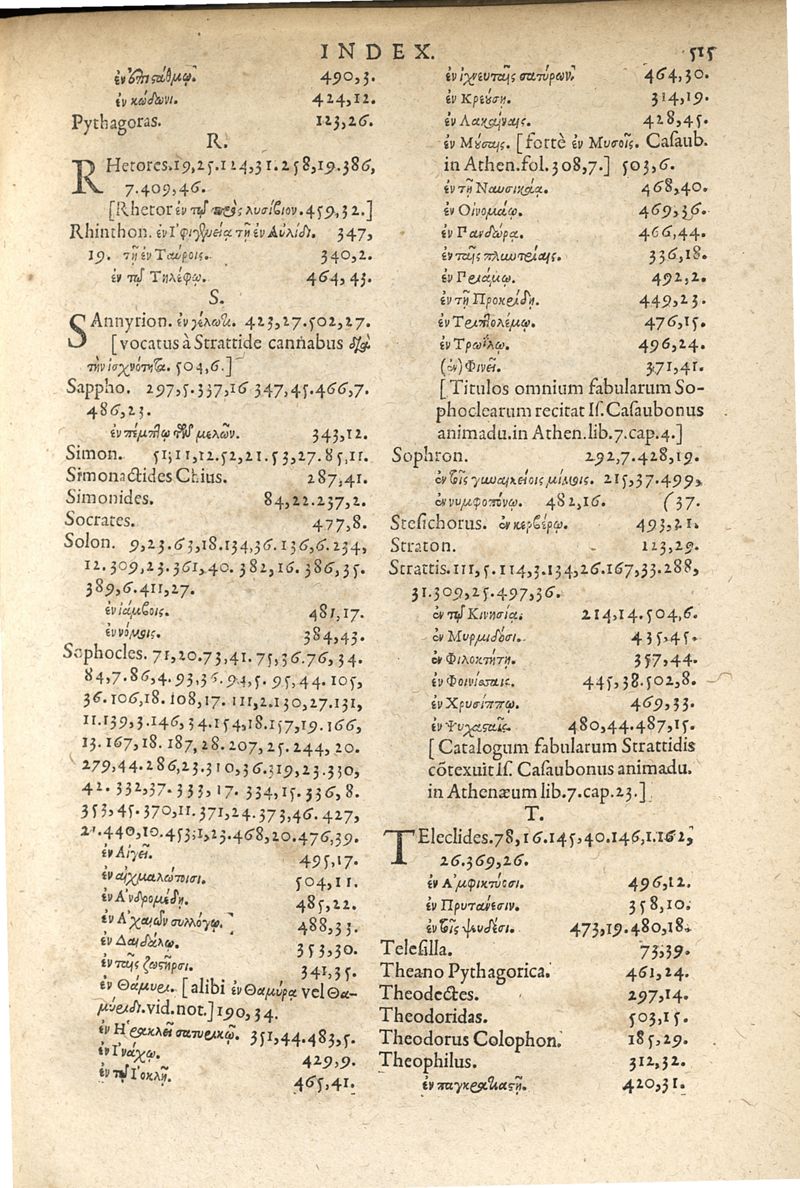 INDEX. 515
ἐν ἐπιστάθμῳ. 490,3.
ἐν κώδωνι. 424,12.
Pythagoras. 123,26.
R.
RHetores.19,25.124,31.258,19.386,
7.409,46.
[Rhetor ἐν τῷ πρὸς λυσίβιον.459,32.]
Rhinthon. ἐν Ἰφιγενείᾳ τῇ ἐν Αὐλίδι. 347,
19. τῇ ἐν Ταύροις. 340,2.
ἐν τῷ Τηλέφῳ. 464,43.
S.
SAnnyrion. ἐν γέλωτι. 423,27.502,27.
[vocatus à Strattide cannabus διὰ
τὴν ἰσχνότητα. 504,6.]
Sappho. 297,5.337,16 347,45.466,7.
486,23.
ἐν πέμπτῳ τῶν μελῶν. 343,12.
Simon. 51,11,12.52,21.53,27.85,11.
Simonactides Chius. 287,41.
Simonides. 84,22.237,2.
Socrates. 477,8.
Solon. 9,23.63,18.134,36.136,6.234,
12.309,23.361,40.382,16.386,35.
389,6.411,27.
ἐν ἰάμβοις. 481,17.
ἐν νόμοις. 384,43.
Sophocles. 71,20.73,41.75,36.76,34.
84,7.86,4.93,36.94,5.95,44.105,
36.106,18.108,17.111,2.130,27.131,
11.139,3.146,34.154,18.157,19.166,
13.167,18.187,28.207,25.244,20.
279,44.286,23.310,36.319,23.330,
42.332,37.333,17.334,15.336,8.
353,45.370,11.371,24.373,46.427,
21.440,10.453,1,23.468,20.476,39.
ἐν Αἰγεῖ. 495,17.
ἐν αἰχμαλώτισι. 504,11.
ἐν Ἀνδρομέδῃ. 485,22.
ἐν Ἀχαιῶν συλλόγῳ. 488,33.
ἐν Δαιδάλῳ. 353,30.
ἐν ταῖς ζωστῆρσι. 341,35.
ἐν Θάμυρι. [alibi ἐν Θαμύρᾳ vel Θα-
μύριδι.vid.not.] 190,34.
ἐν Ἡρακλεῖ σατυρικῷ. 351,44.483,5.
ἐν Ἰνάχῳ. 429,9.
ἐν τῷ Ἰοκλῇ. 465,41.
ἐν ἰχνευταῖς σατύρων. 464,30.
ἐν Κρεούσῃ. 314,19.
ἐν Λακαίναις. 428,45.
ἐν Μύσαις. [fortè ἐν Μυσοῖς. Casaub.
in Athen.fol.308,7.] 503,6.
ἐν τῇ Ναυσικάᾳ. 468,40.
ἐν Οἰνομάῳ. 469,36.
ἐν Πανδώρᾳ. 466,44.
ἐν ταῖς πλυντρίαις. 336,18.
ἐν Πριάμῳ. 492,2.
ἐν τῇ Προκρίδῃ. 449,23.
ἐν Τριπτολέμῳ. 476,15.
ἐν Τρωΐλῳ. 496,24.
(ἐν) Φινεῖ. 371,41.
[Titulos omnium fabularum So-
phoclearum recitat Is. Casaubonus
animadu.in Athen.lib.7.cap.4.]
Sophron. 292,7.428,19.
ἐν τοῖς γυναικείοις μίμοις. 215,37.499,
ἐν νυμφοπόνῳ. 482,16. (37.
Stesichorus. ἐν κερβέρῳ. 493,21.
Straton. 123,29.
Strattis.111,5.114,3.134,26.167,33.288,
31.309,25.497,36.
ἐν τῷ Κινησίᾳ. 214,14.504,6.
ἐν Μυρμιδόσι. 435,45.
ἐν Φιλοκτήτῃ. 357,44.
ἐν Φοινίσσαις. 445,38.502,8.
ἐν Χρυσίππῳ. 469,33.
ἐν Ψυχασταῖς. 480,44.487,15.
[Catalogum fabularum Strattidis
cōtexuit Is. Casaubonus animadu.
in Athenæum lib.7.cap.23.]
T.
TEleclides.78,16.145,40.146,1.162,
26.369,26.
ἐν Ἀμφικτύοσι. 496,12.
ἐν Πρυτάνεσιν. 358,10.
ἐν τοῖς ψευδέσι. 473,19.480,18.
Telesilla. 73,39.
Theano Pythagorica. 461,24.
Theodectes. 297,14.
Theodoridas. 503,15.
Theodorus Colophon. 185,29.
Theophilus. 312,32.
ἐν παγκρατιαστῇ. 420,31.